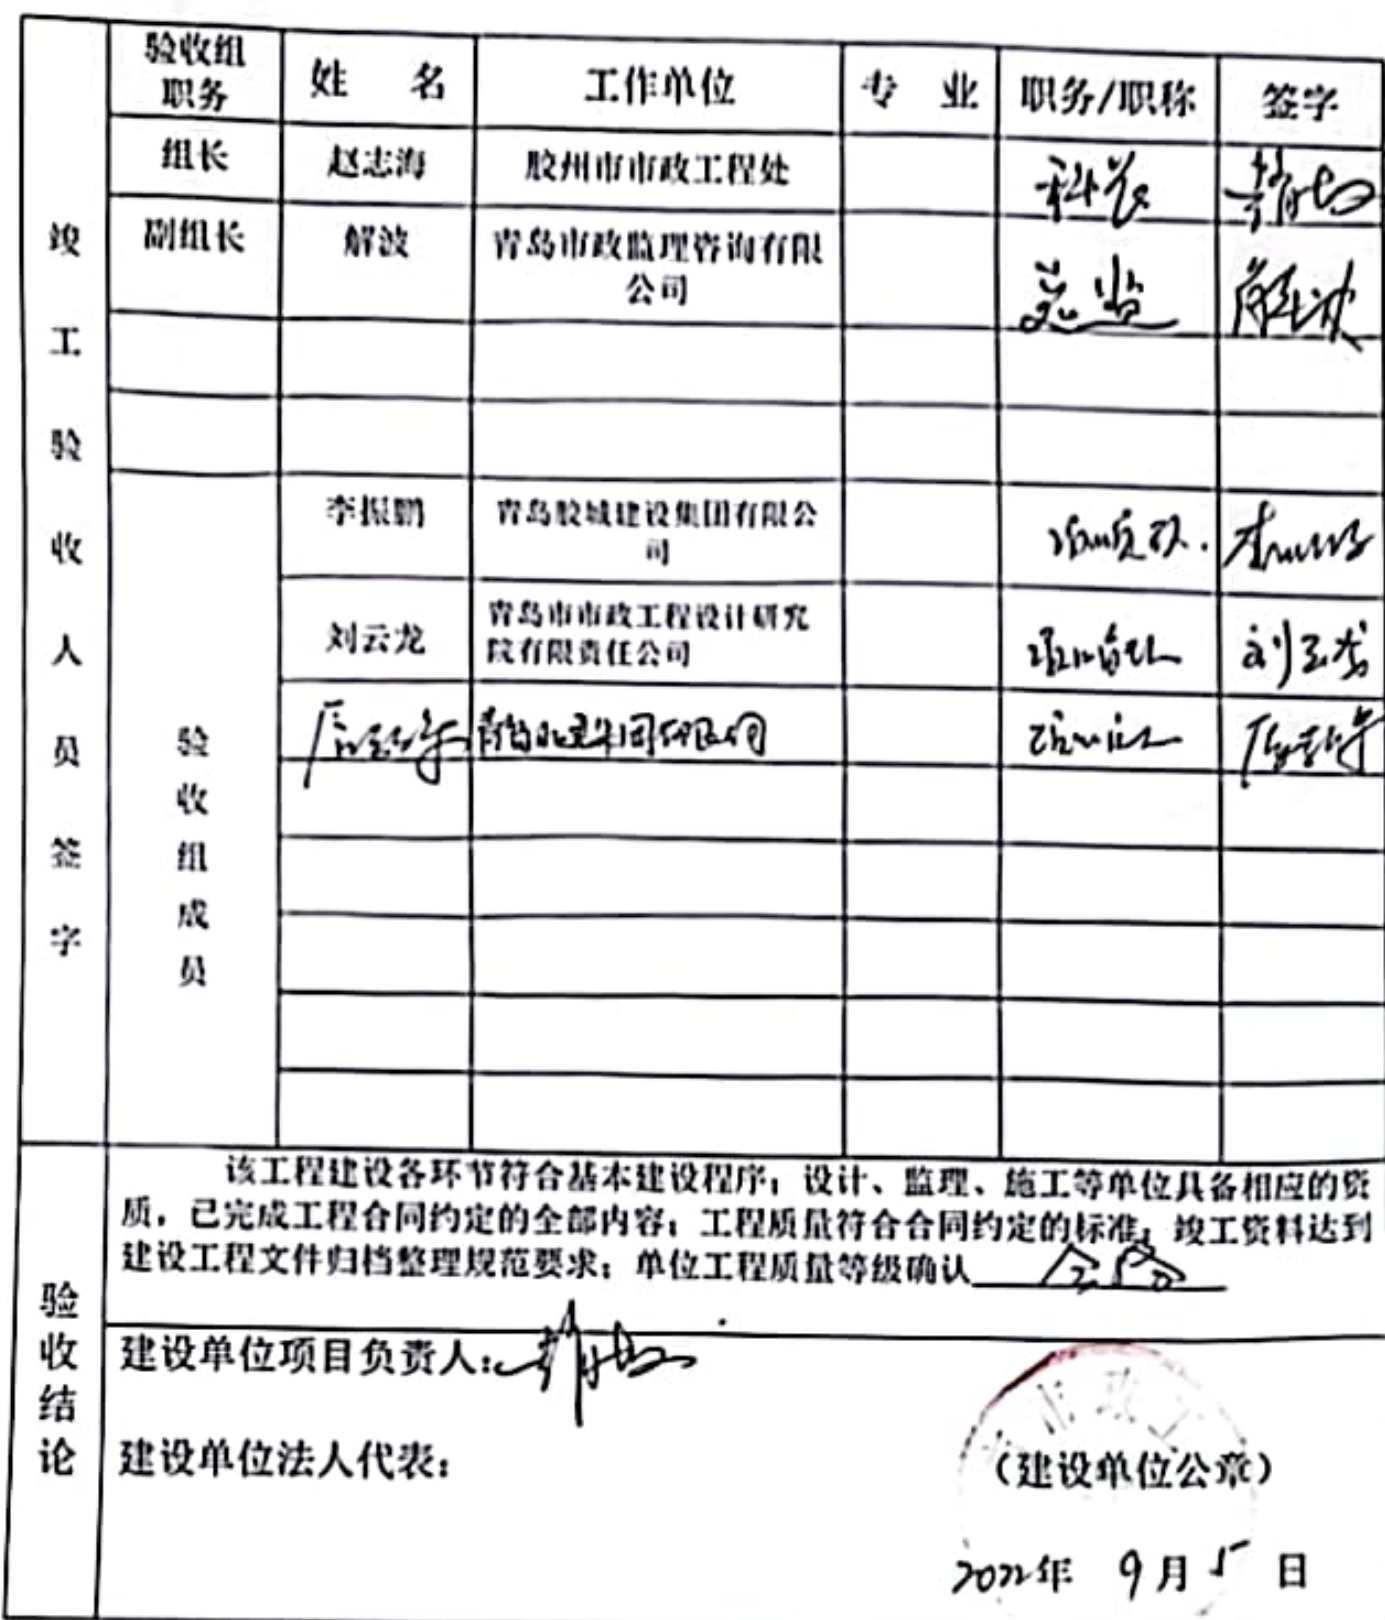 竣工验收人员签字
验收组职务 姓 名 工作单位 专 业 职务/职称 签字
组长 赵志海 胶州市市政工程处 科长
副组长 解波 青岛市政监理咨询有限 总监 解波
公司
验收组成员
李振鹏 青岛胶城建设集团有限公
司
刘云龙 青岛市市政工程设计研究 刘云龙
院有限责任公司
验收结论
该工程建设各环节符合基本建设程序；设计、监理、施工等单位具备相应的资
质，已完成工程合同约定的全部内容；工程质量符合合同约定的标准；竣工资料达到
建设工程文件归档整理规范要求；单位工程质量等级确认 合格
建设单位项目负责人：
建设单位法人代表：
（建设单位公章）
2022年 9月5日